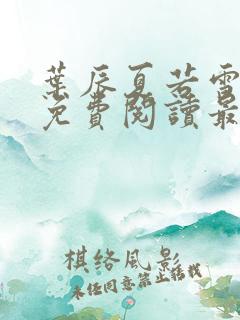 葉辰夏若雪
免費閱讀最
棋絡風影
未经同意禁止转载